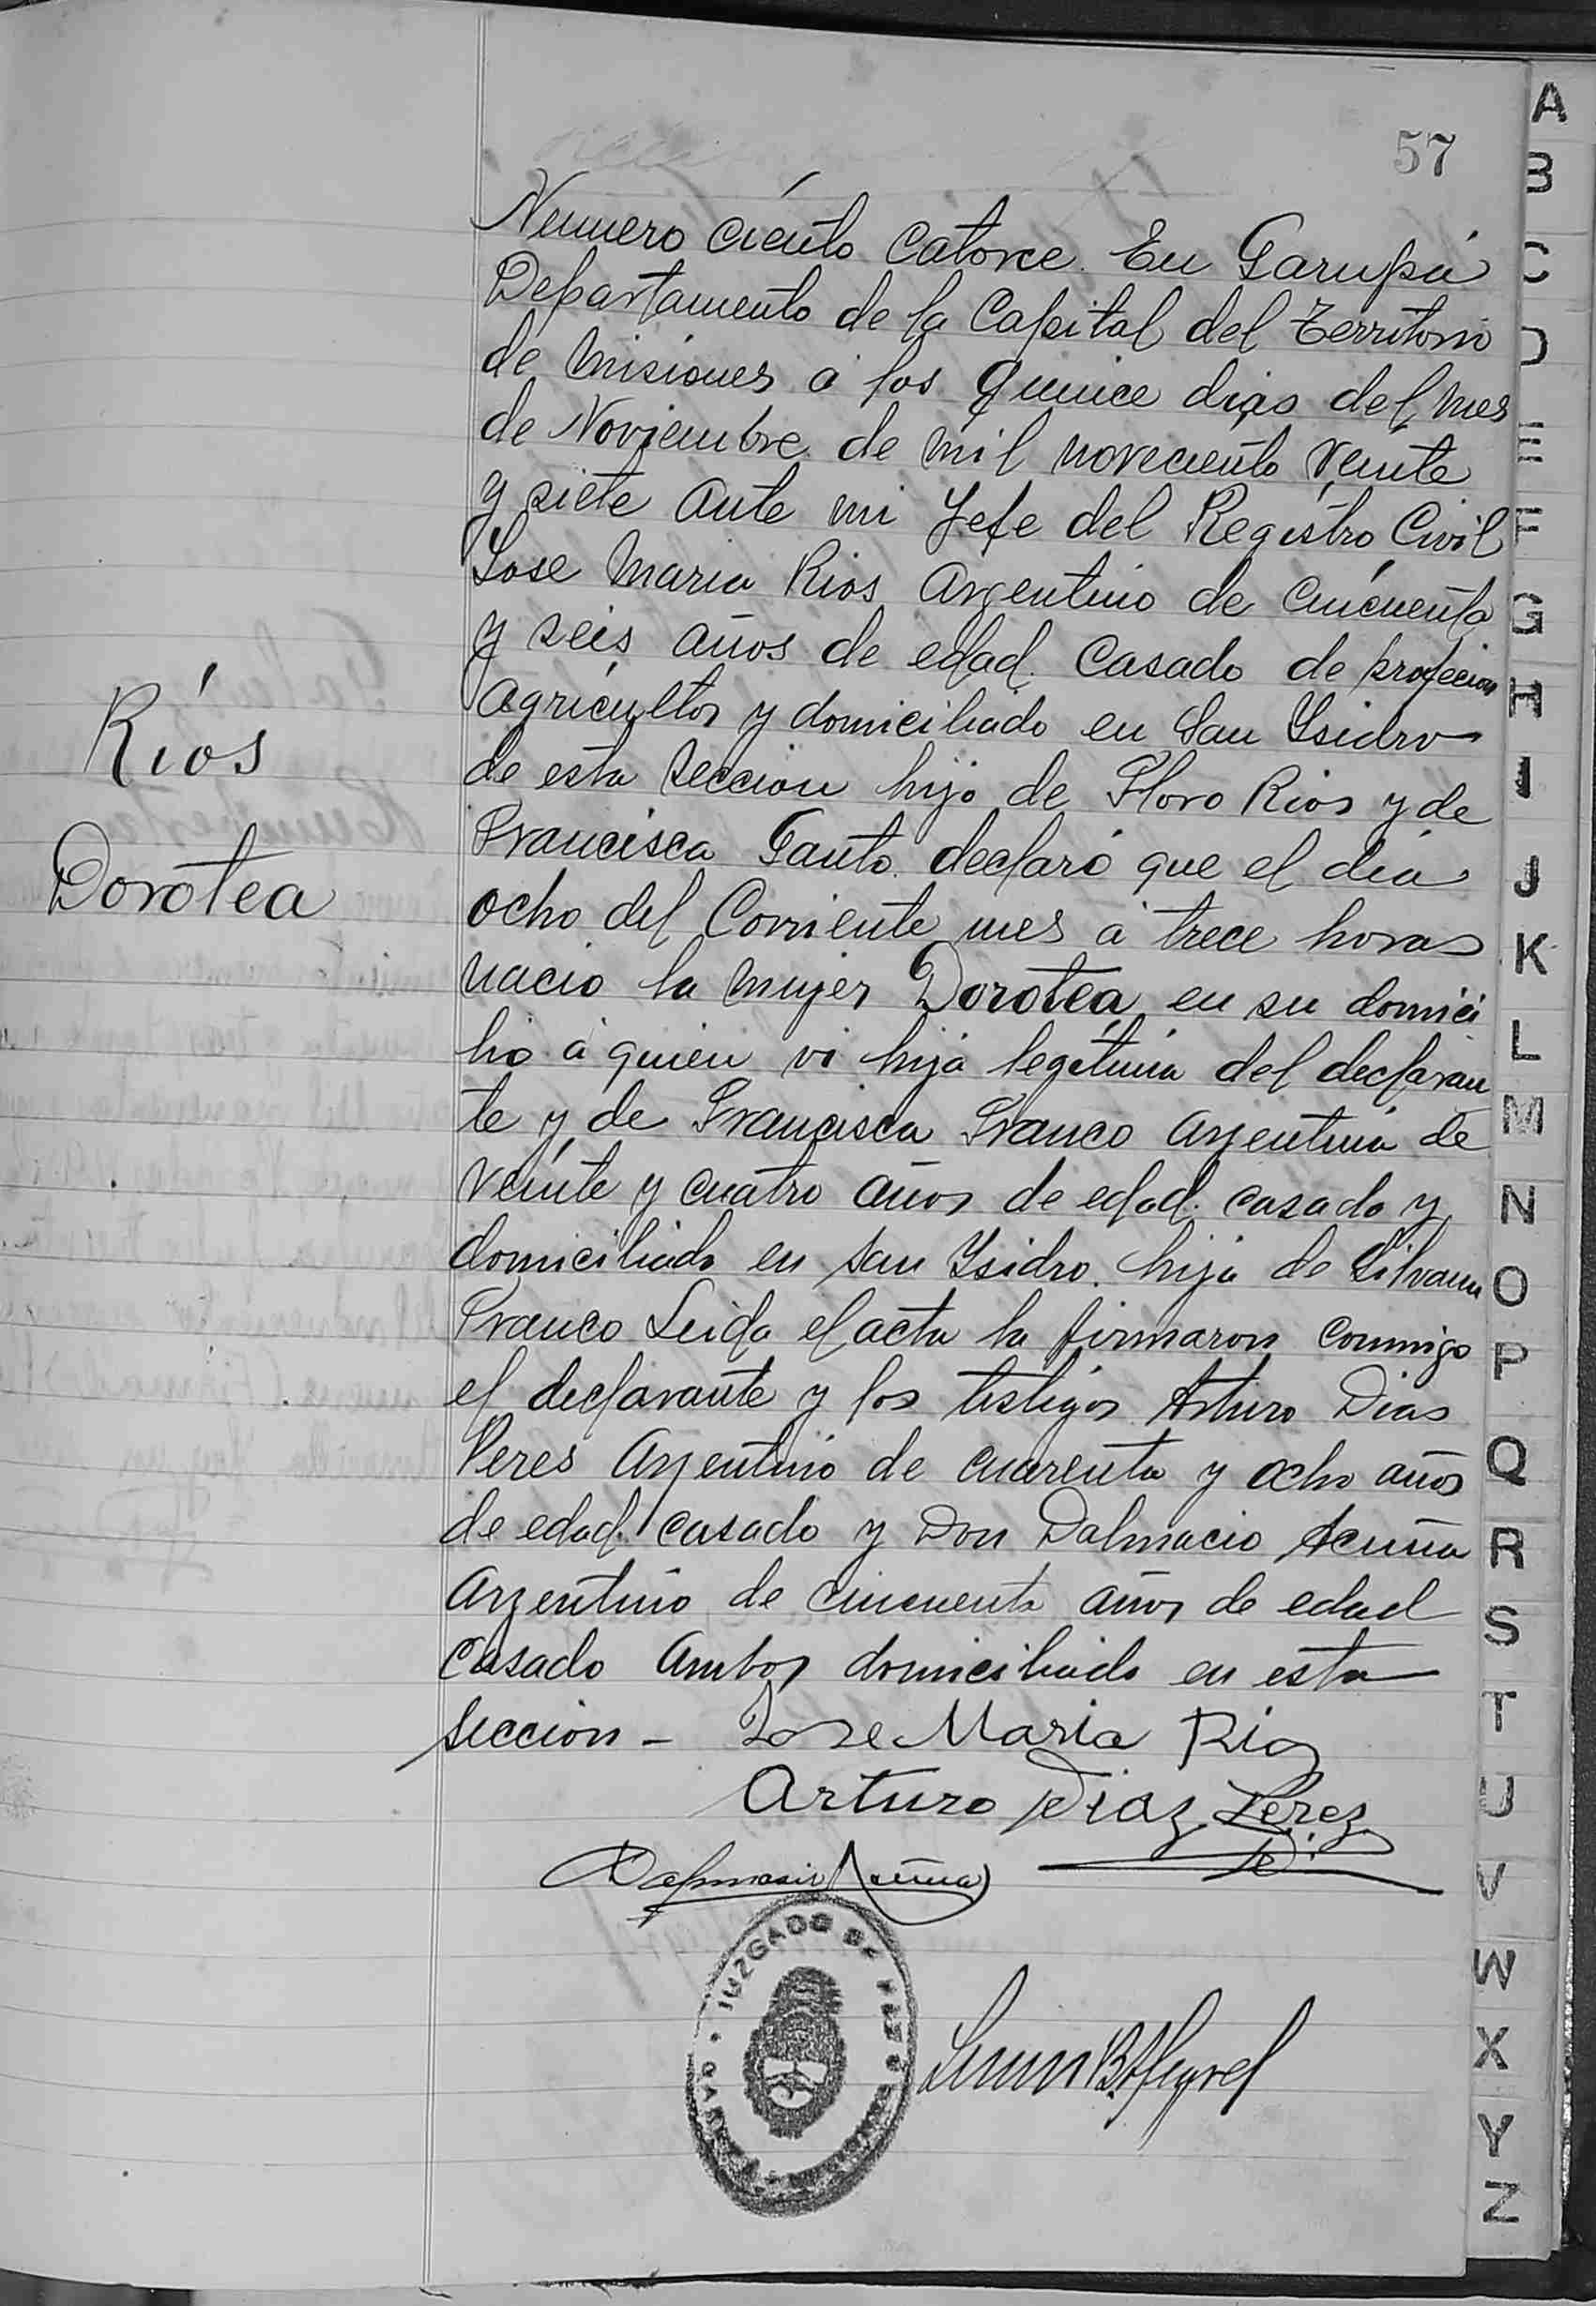 57
Numero ciento catorce. En Garupá
Departamento de la Capital del Territorio
de Misiones á los quince dias del mes
de Noviembre de mil noveciento veinte
y siete ante mi Jefe del Registro Civil
Jose Maria Rios Argentino de cincuenta
y seis años de edad. Casado de profecion
agricultor y domiciliado en San Ysidro
de esta seccion hijo de Floro Rios y de
Francisca Gauto. declaró que el dia
ocho del Corriente mes á trece horas
nacio la mujer Dorotea en su domici
lio á quien vi hija legitima del declaran
te y de Francisca Franco argentina de
veinte y cuatro años de edad. casado y
domiciliado en San Ysidro. hija de Silvana
Franco Leida el acta la firmaron conmigo
el declarante y los testigos Arturo Dias
Peres Argentino de cuarenta y ocho años
de edad. casado y Don Dalmacio Acuña
Argentino de cincuenta años de edad
casado ambos domiciliado en esta
seccion - Jose Maria Rios
Arturo Diaz Perez
Dalmasio Acuña
Ríos
Dorotea
JUZGADO DE PAZ
A
B
C
D
E
F
G
H
I
J
K
L
M
N
O
P
Q
R
S
T
U
V
W
X
Y
Z